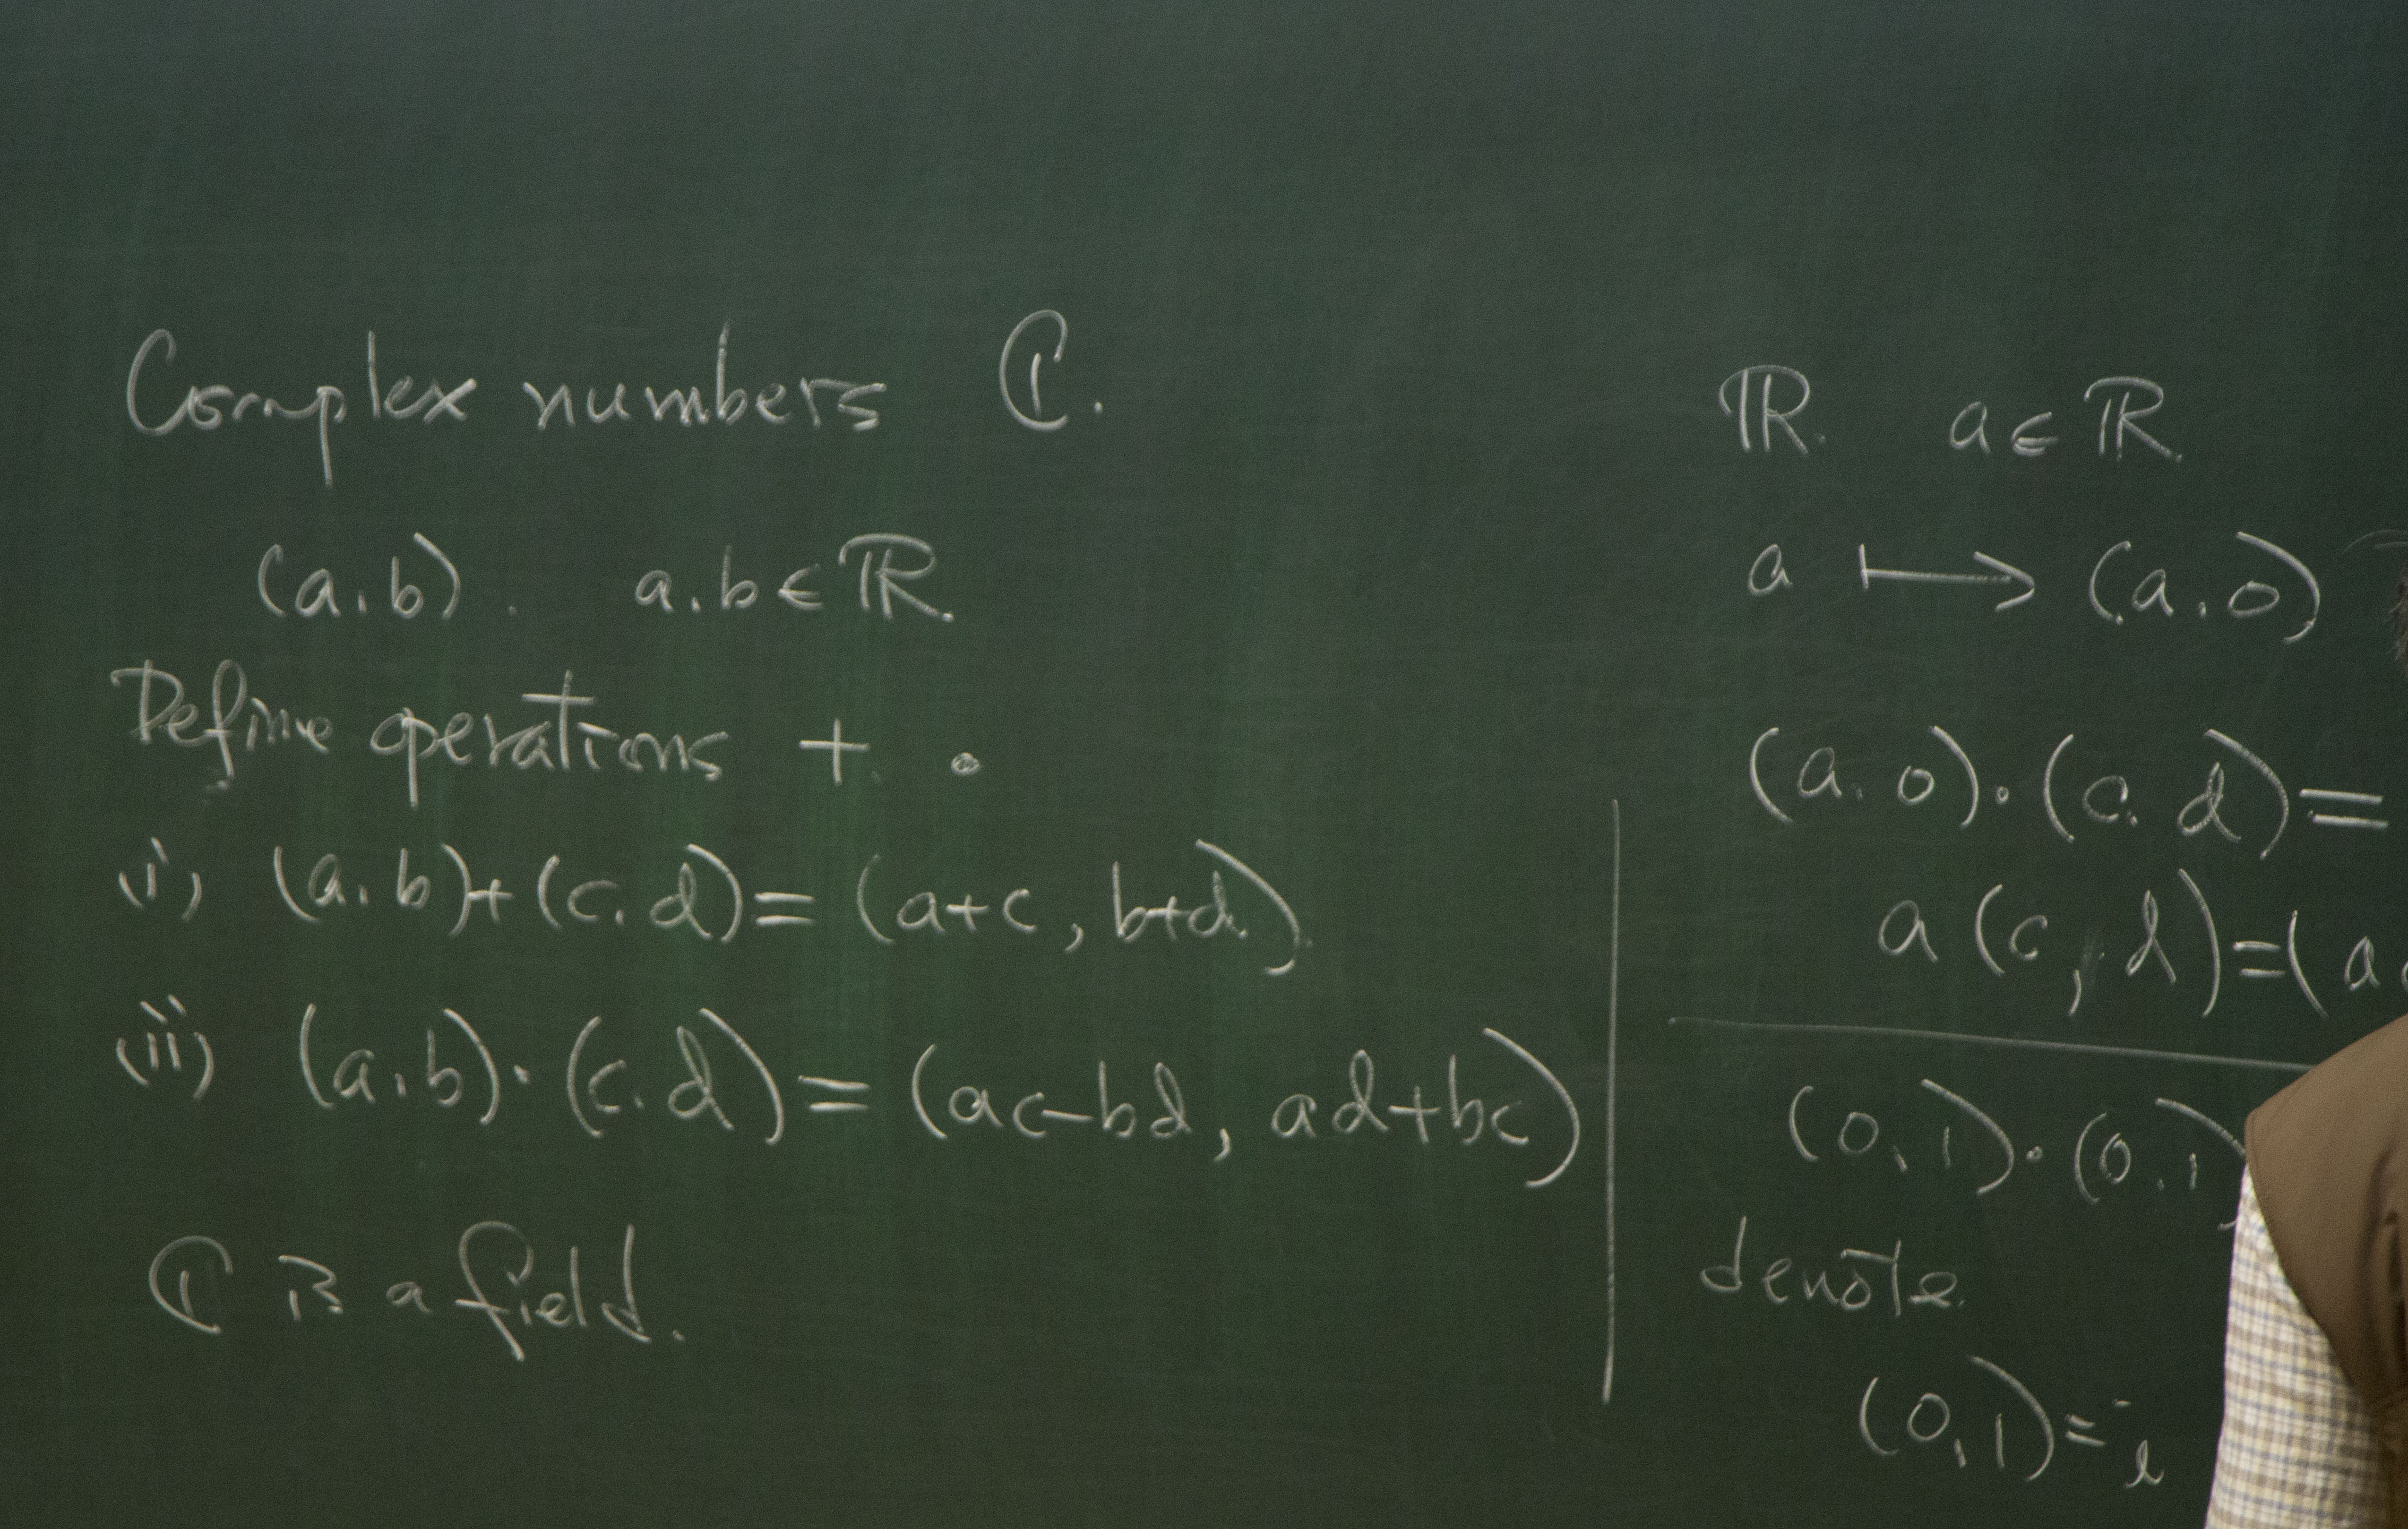 Complex numbers ℂ.
(a.b). a.b∈ℝ.
Define operations +. ∘
(i) (a.b)+(c.d)=(a+c, b+d).
(ii) (a.b)·(c.d)=(ac-bd, ad+bc)
ℂ is a field.
ℝ. a∈ℝ.
a ↦ (a.0)
(a.0)·(c.d)=
a(c,d)=(a
(0,1)·(0.1)
denote.
(0,1)=i